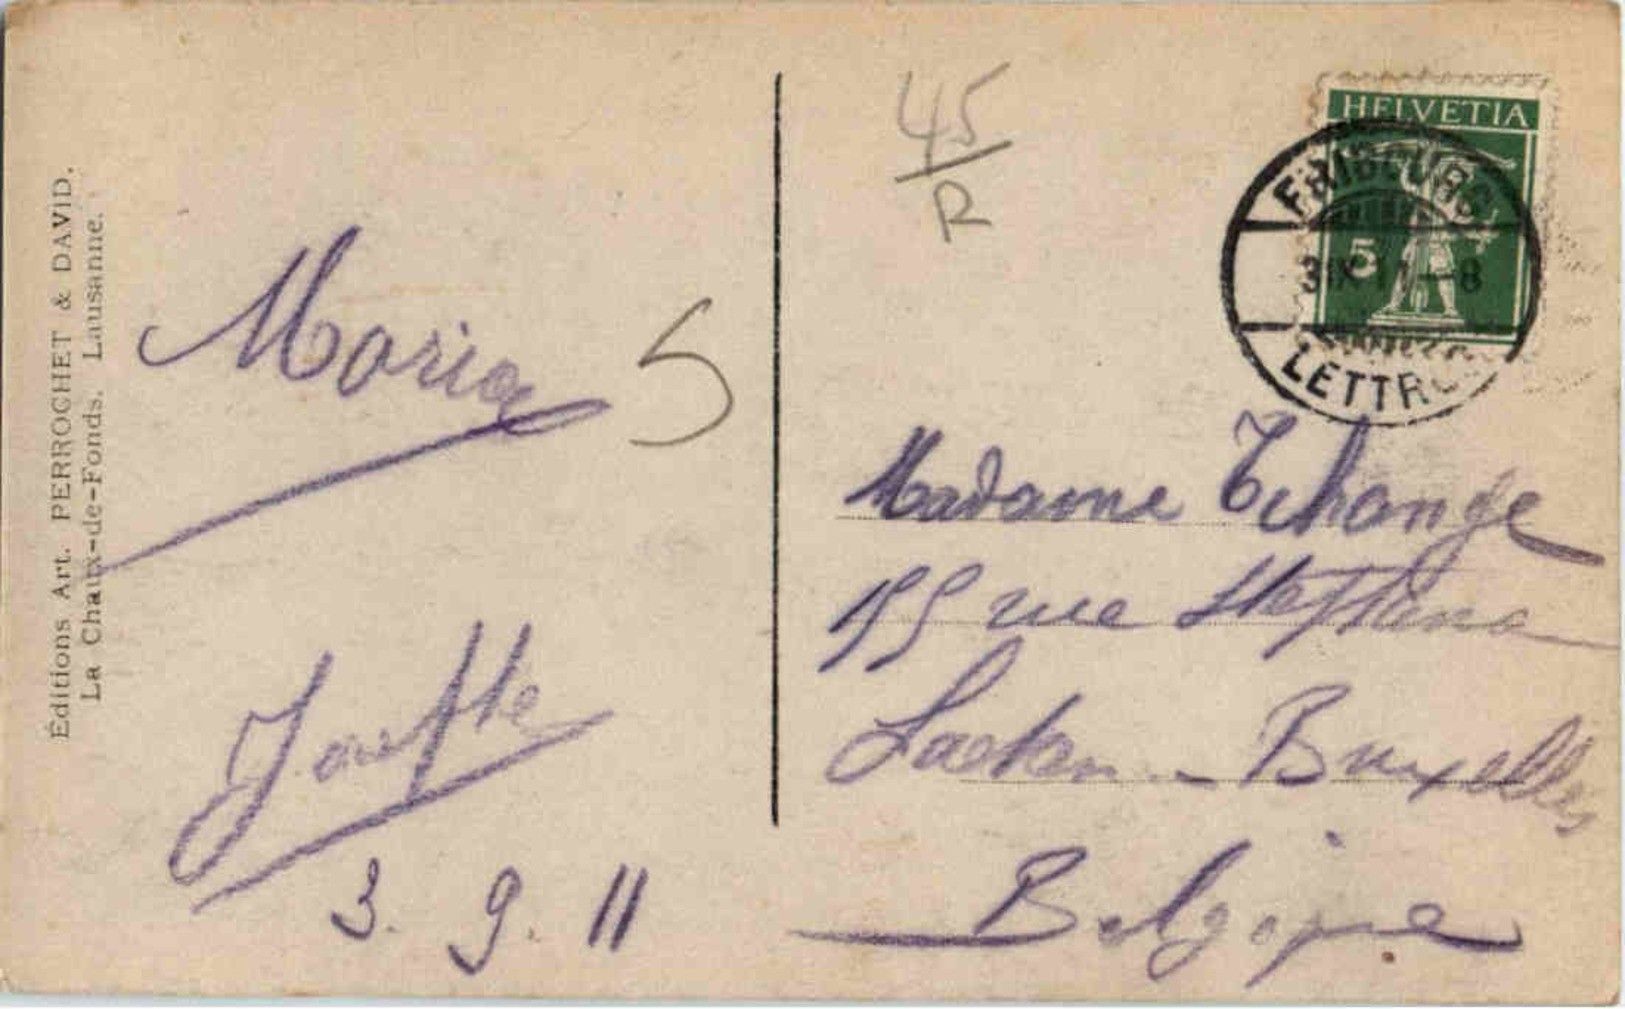 Éditions Art. PERROCHET & DAVID.
La Chaux-de-Fonds. Lausanne.
Maria
S
3. 9. 11
45
R
HELVETIA
5
FRIBOURG
3 IX 11 - 8
LETTR
Madame
rue
Laeken - Bruxelles
Belgique